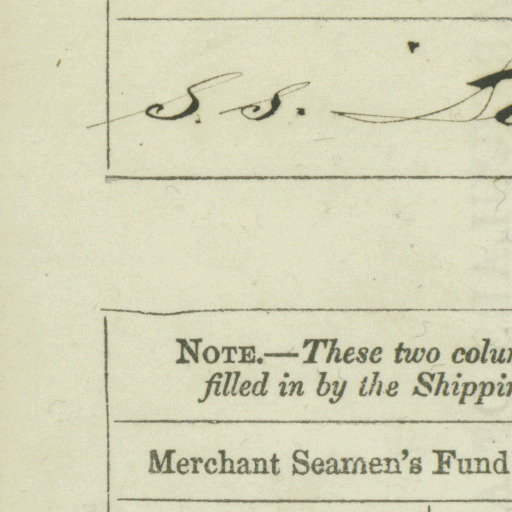 S. S.
NOTE.—These two
filled in by the
Merchant Seamen's Fund